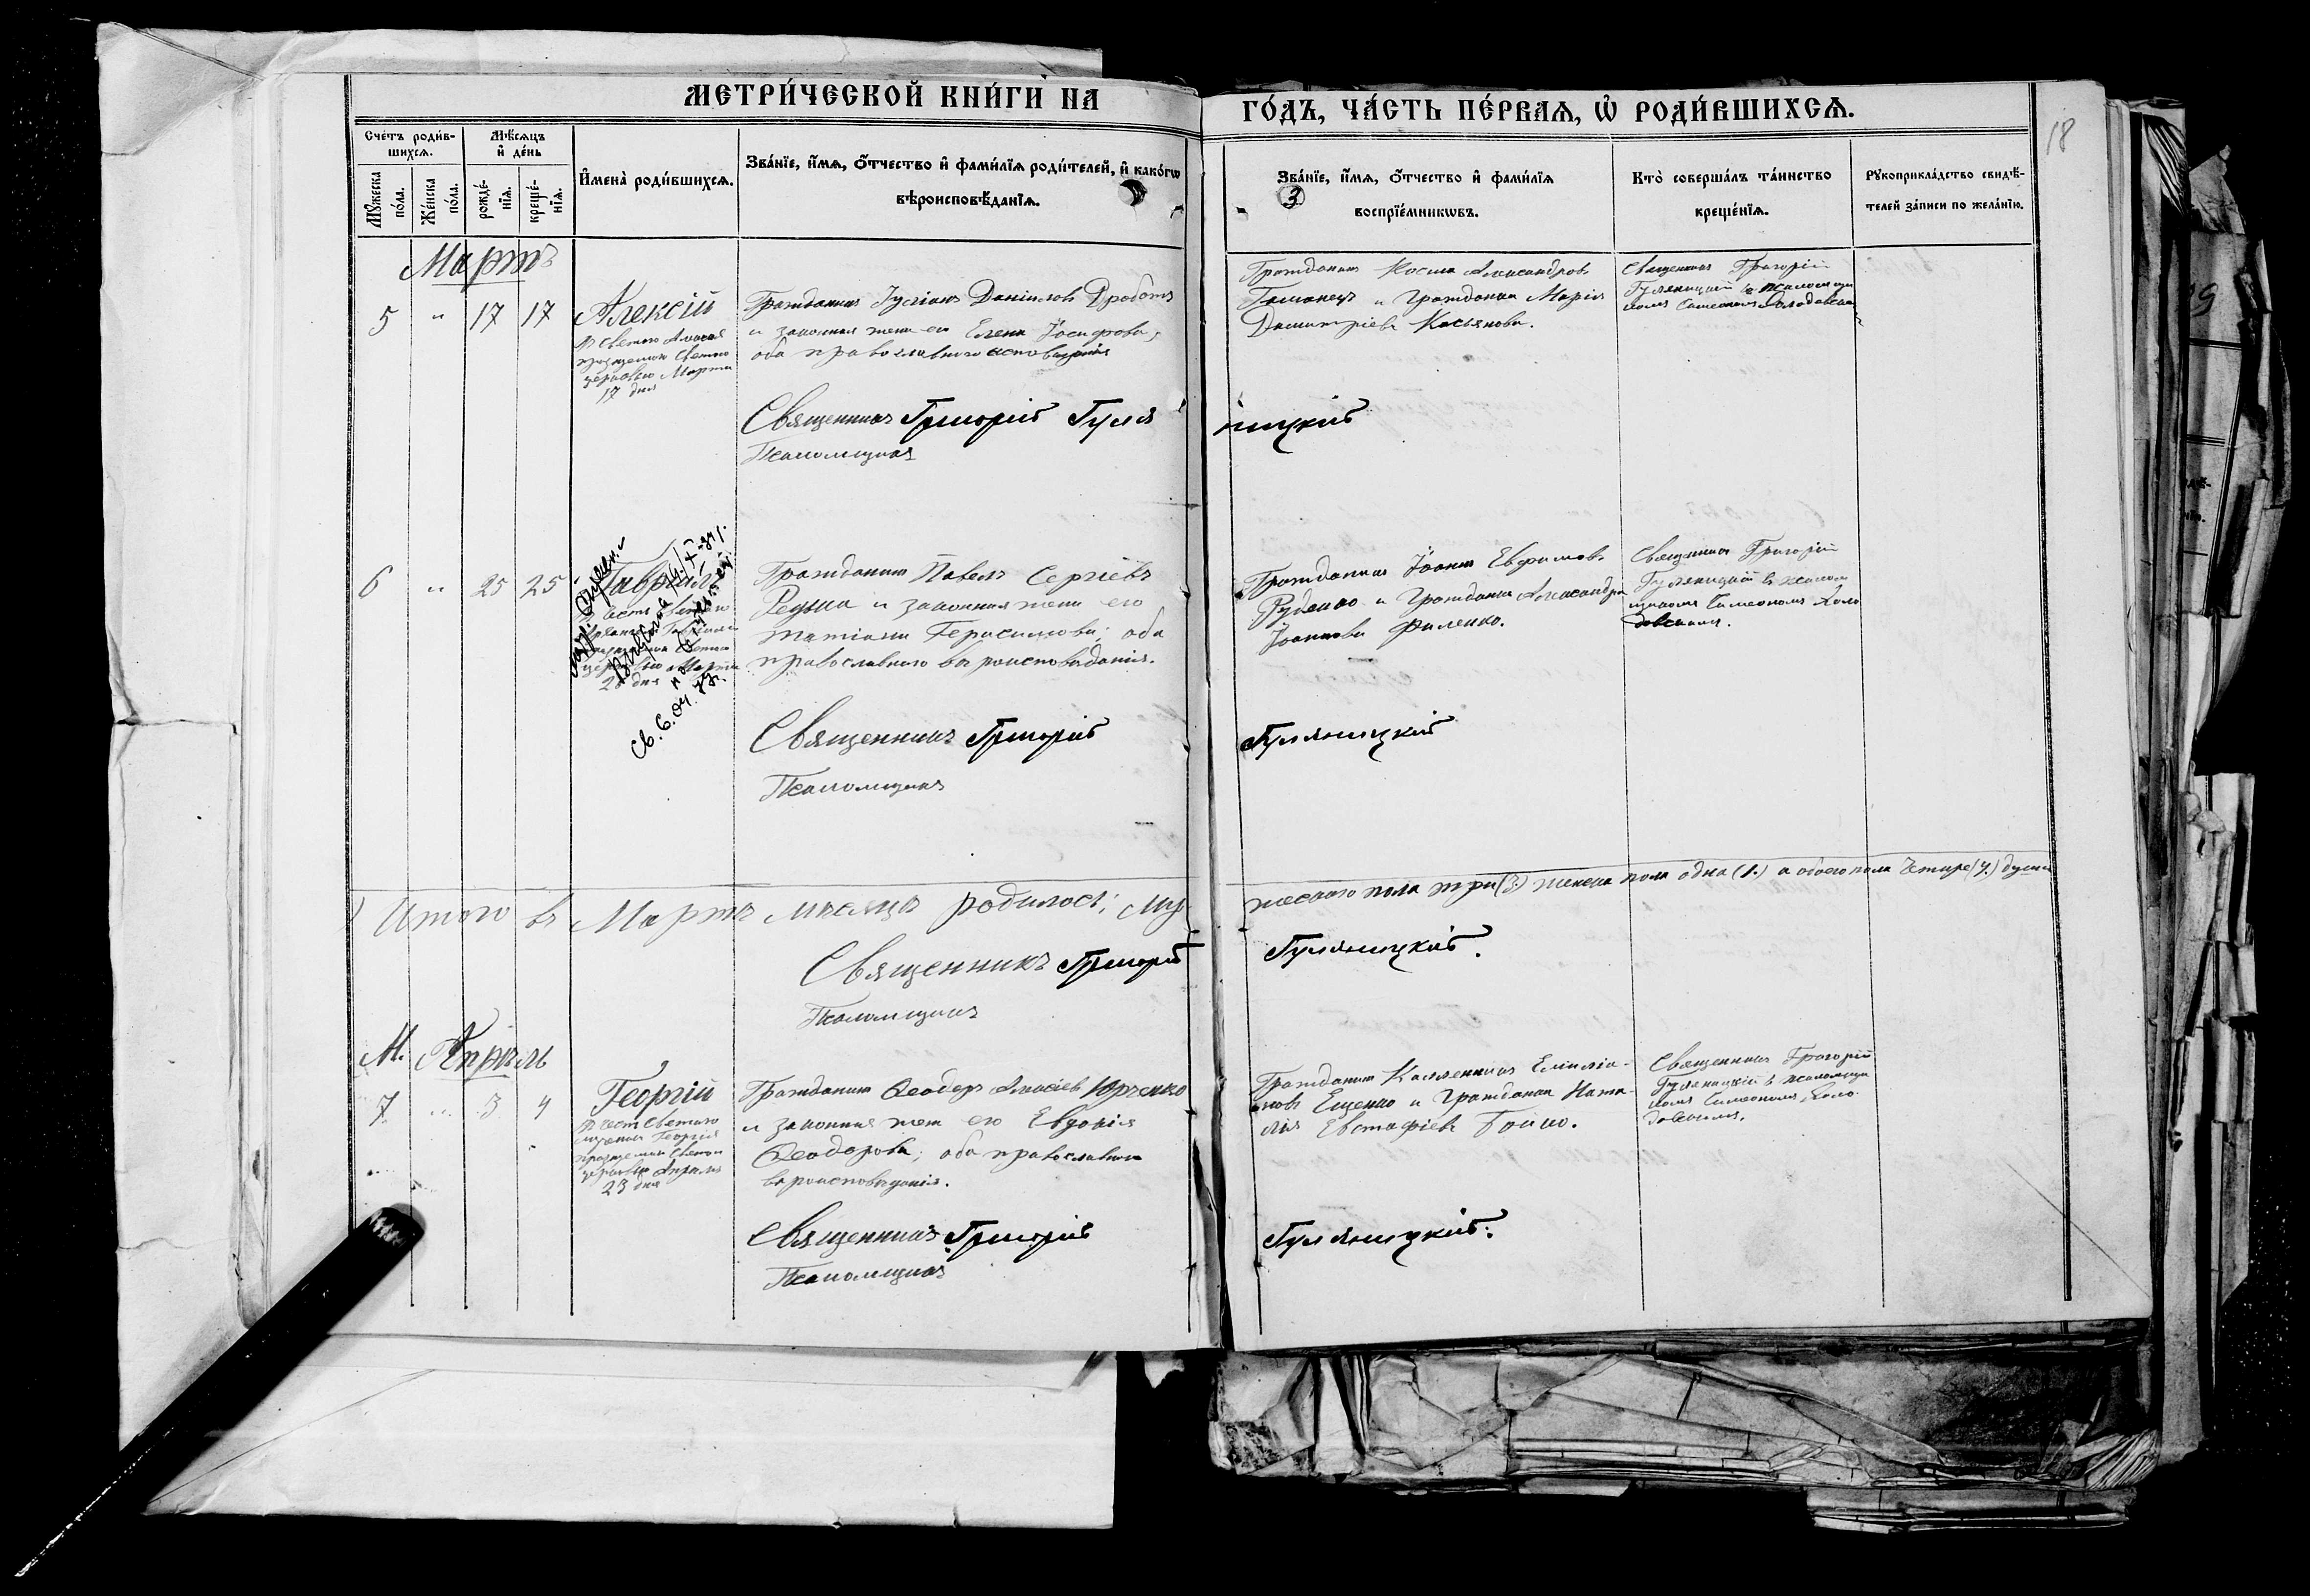 МЕТРИ́ЧЕСКОЙ КНИ́ГИ НА ГО́ДЪ, ЧА́СТЬ ПЕ́РВАЯ, Ѽ РОДИ́ВШИХСЯ.
18
Сче́тъ роди́в-
шихся.
Мѣ́сяцъ
и҆ де́нь
Мꙋ́жеска
по́ла.
Же́нска
по́ла.
рожде́-
нїя.
креще́-
нїя.
И҆мена̀ роди́вшихся.
Зва́нїе, и҆́мя, ѻ҆́тчество и҆ фами́лїя роди́телей, и҆ како́гѡ
вѣроисповѣ́данїя.
Зва́нїе, и҆́мя, ѻ҆́тчество и҆ фами́лїя
воспрїе́мникѡвъ.
3
Кто̀ соверша́лъ та́инство
креще́нїя.
Рꙋкоприкла́дство свидѣ́-
телей за́писи по жела́нїю.
Мартъ
5 " 17 17
Алексій
церковью Марта
17 дня
Гражданинъ Даніиловъ Дроботъ
и законная жена его Елена Іосифова,
оба православного исповеданія
Гражданинъ Косма Александровъ
и Гражданка Марія
Димитріева Касьянова.
Священникъ Григорій
Гуляницкій съ псаломщи
комъ Симеономъ
Священникъ Григорій Гуляницкій
Псаломщикъ
6 " 25 25
Гавріилъ
Св. 6.04.
Гражданинъ Павелъ Сергіевъ
и законная жена его
Татіана Герасимова; оба
православного вероисповеданія.
Гражданинъ Іоаннъ Евфимовъ
Руденко и Гражданка Александра
Іоаннова Филенко.
Священникъ Григорій
Гуляницкій съ псалом
щикомъ Симеономъ Коло
довскимъ.
Священникъ Григорій Гуляницкій
Псаломщикъ
Итого въ Марте месяце родилось; му
жескаго пола три (3.) женска пола одна (1.) а обоего пола четыре (4.) души
Священникъ Григорій Гуляницкій.
Псаломщикъ
М. Апрель
7 " 3 4
Георгій
В честь Святаго
церковью Апреля
23 дня
Гражданинъ Ѳеодоръ Юрченко
и законная жена его Евдокія
Ѳеодорова; оба православного
вероисповеданія.
Гражданинъ Каллиникъ Емиліа-
новъ Ещенко и Гражданка Ната-
лія Евстафіева Бойко.
Священникъ Григорій
Гуляницкій съ псаломщи
комъ Симеономъ Коло-
довскимъ.
Священникъ Григорій Гуляницкій.
Псаломщикъ